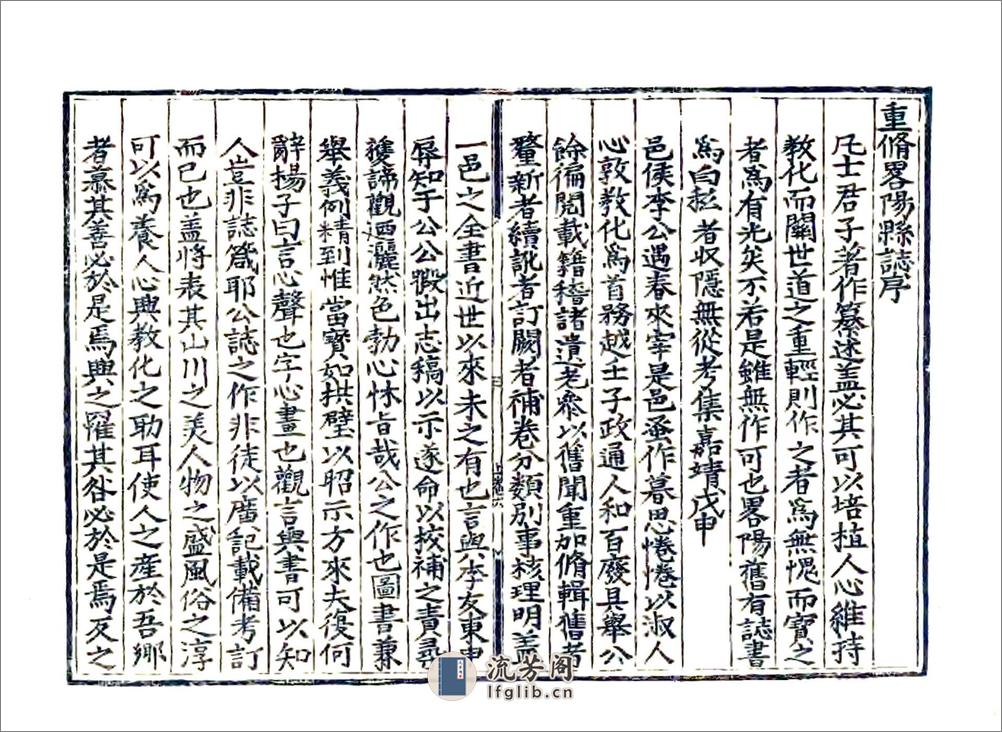 重脩畧陽縣誌序
凡士君子著作纂述盖必其可以培植人心維持
敎化而闗世道之重輕則作之者爲無愧而寳之
者爲有光矣不若是雖無作可也畧陽舊有誌書
爲白 者收隱無從考集嘉靖戊申
邑侯李公遇春來宰是邑蚤作暮思惓惓以淑人
心敦敎化爲首務越士子政通人和百廢具舉公
餘徧閲載籍稽諸遺老叅以舊聞重加脩輯舊者
釐新者續訛者訂闕者補卷分類别事核理明盖
一邑之全書近世以來未之有也言與李友東
辱知于公公叚出志稿以示遂命以校補之責尋
䕶諦觀迺灑然色勃心怵旨哉公之作也圖書兼
舉義例精到惟當寳如拱璧以昭示方來夫復何
辭揚子曰言心聲也字心畫也觀言與書可以知
人豈非誌箴耶公誌之作非徒以廣記載備考訂
而已也盖將表其山川之美人物之盛風俗之淳
可以爲養人心興敎化之助耳使人之産於吾鄉
者慕其善必於是焉興之罹其咎必於是焉反之
流芳阁
lfglib.cn